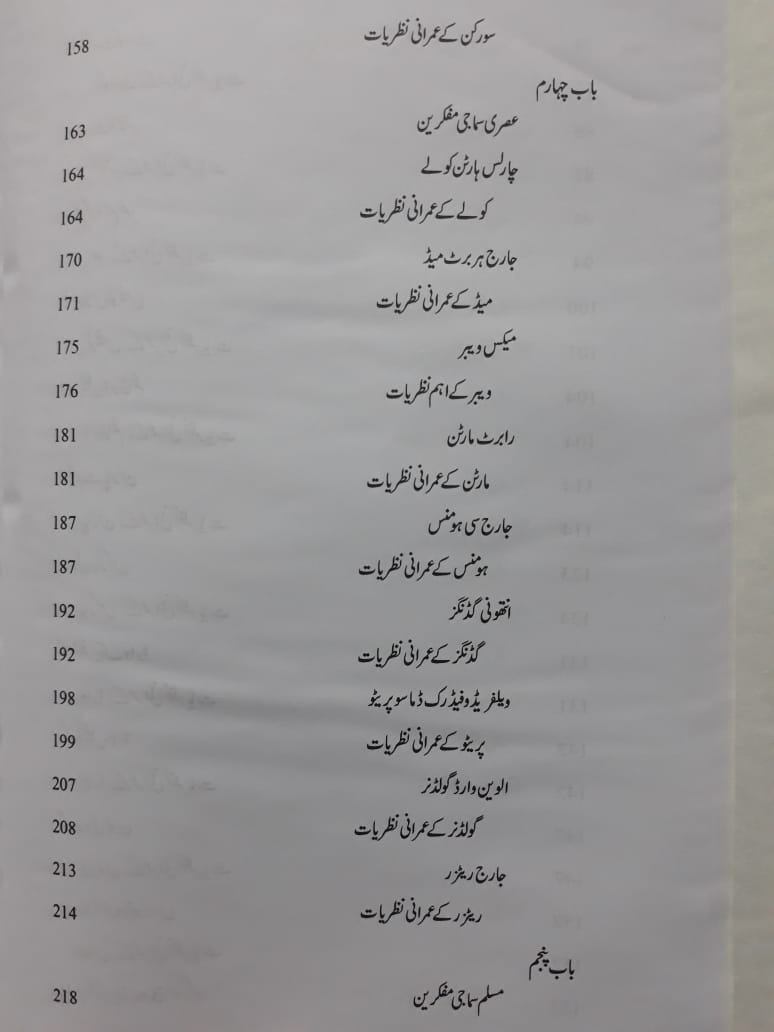 سورکن کے عمرانی نظریات 158
باب چہارم
عصری سماجی مفکرین 163
چارلس ہارٹن کولے 164
کولے کے عمرانی نظریات 164
جارج ہربرٹ میڈ 170
میڈ کے عمرانی نظریات 171
میکس ویبر 175
ویبر کے اہم نظریات 176
رابرٹ مارٹن 181
مارٹن کے عمرانی نظریات 181
جارج سی ہومنس 187
ہومنس کے عمرانی نظریات 187
انتھونی گڈنگز 192
گڈنگز کے عمرانی نظریات 192
ویلفریڈو فیڈرک ڈماسو پریٹو 198
پریٹو کے عمرانی نظریات 199
الوین وارڈ گولڈنر 207
گولڈنر کے عمرانی نظریات 208
جارج ریٹزر 213
ریٹزر کے عمرانی نظریات 214
باب پنجم
مسلم سماجی مفکرین 218